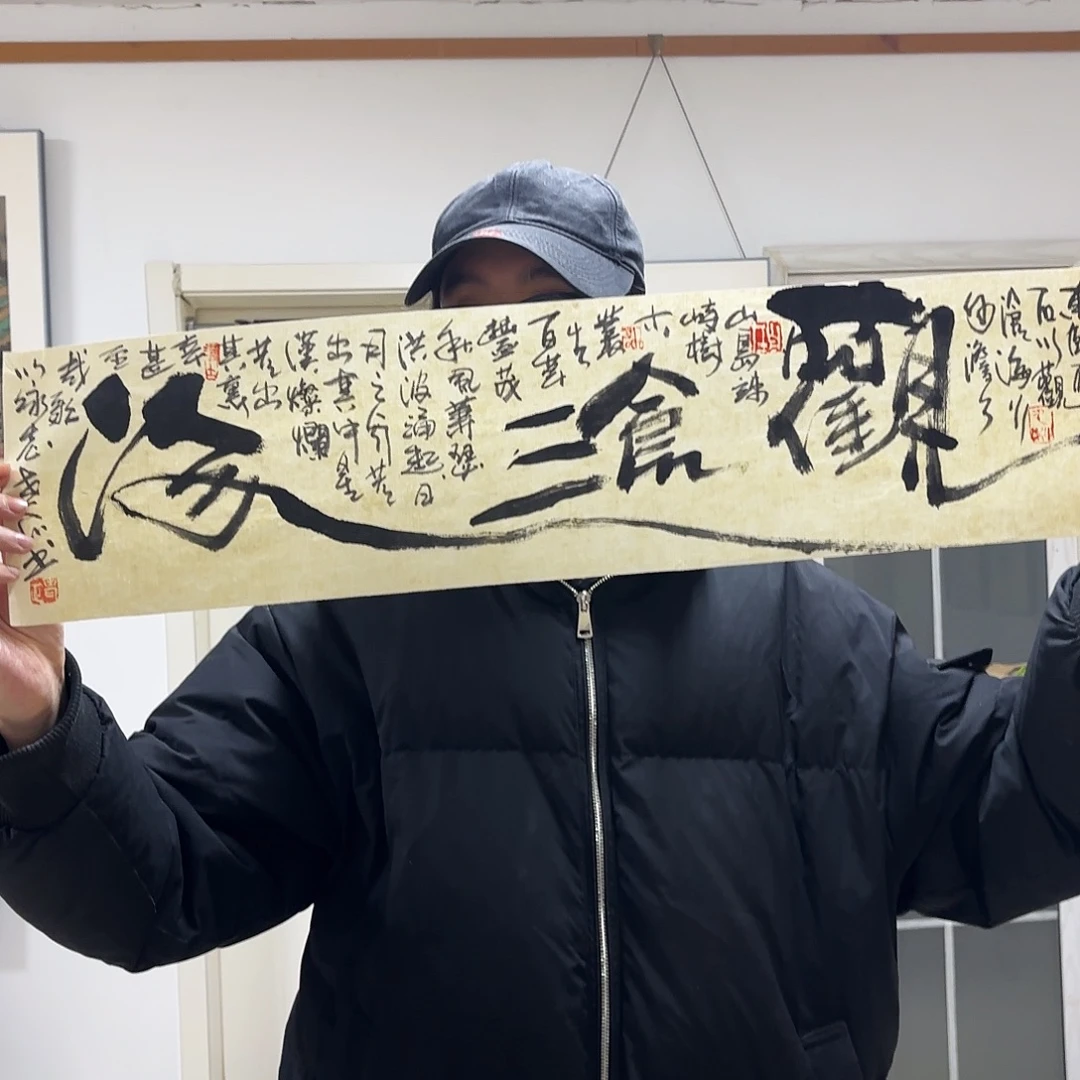 觀滄海
東臨碣
石以觀
滄海水
何澹々
山島竦
峙樹
木
叢
生
百草
豐茂
秋風蕭瑟
洪波涌起日
月之行若
出其中星
漢燦爛
若出
其裏
幸
甚
至
哉歌
以詠志